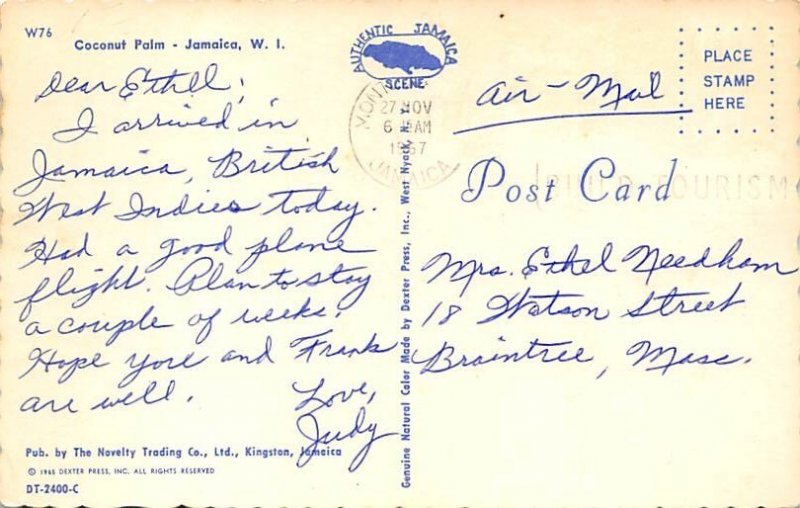 W76
Coconut Palm - Jamaica, W. I.
Dear Ethel;
I arrived in
Jamaica, British
West Indies today.
Had a good plane
flight. Plan to stay
a couple of weeks.
Hope you and Frank
are well.
Love,
Judy
Pub. by The Novelty Trading Co., Ltd., Kingston, Jamaica
© 1965 DEXTER PRESS, INC. ALL RIGHTS RESERVED
DT-2400-C
AUTHENTIC JAMAICA
SCENE
27 NOV
AM
1967
JAMAICA
Genuine Natural Color Made by Dexter Press, Inc., West Nyack, N. Y.
Air-Mail
PLACE
STAMP
HERE
Post Card
TOURISM
Mrs. Ethel Needham
18 Watson Street
Braintree, Mass.